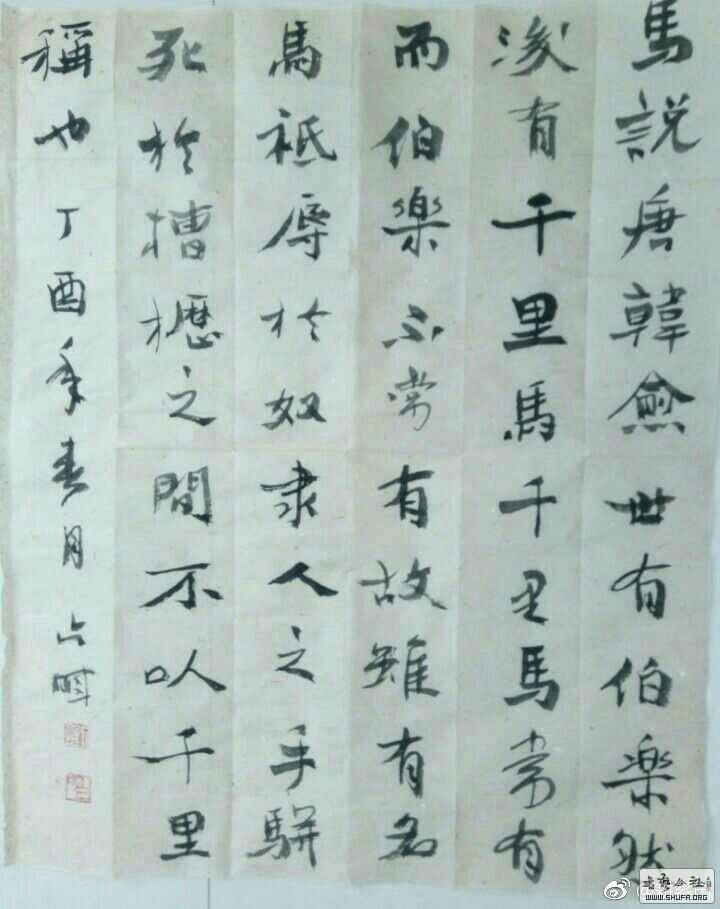 馬説唐韓愈世有伯樂然
後有千里馬千里馬常有
而伯樂不常有故雖有名
馬祗辱於奴隶人之手駢
死於槽櫪之間不以千里
稱也丁酉年春月
书艺公社
WWW.SHUFA.ORG